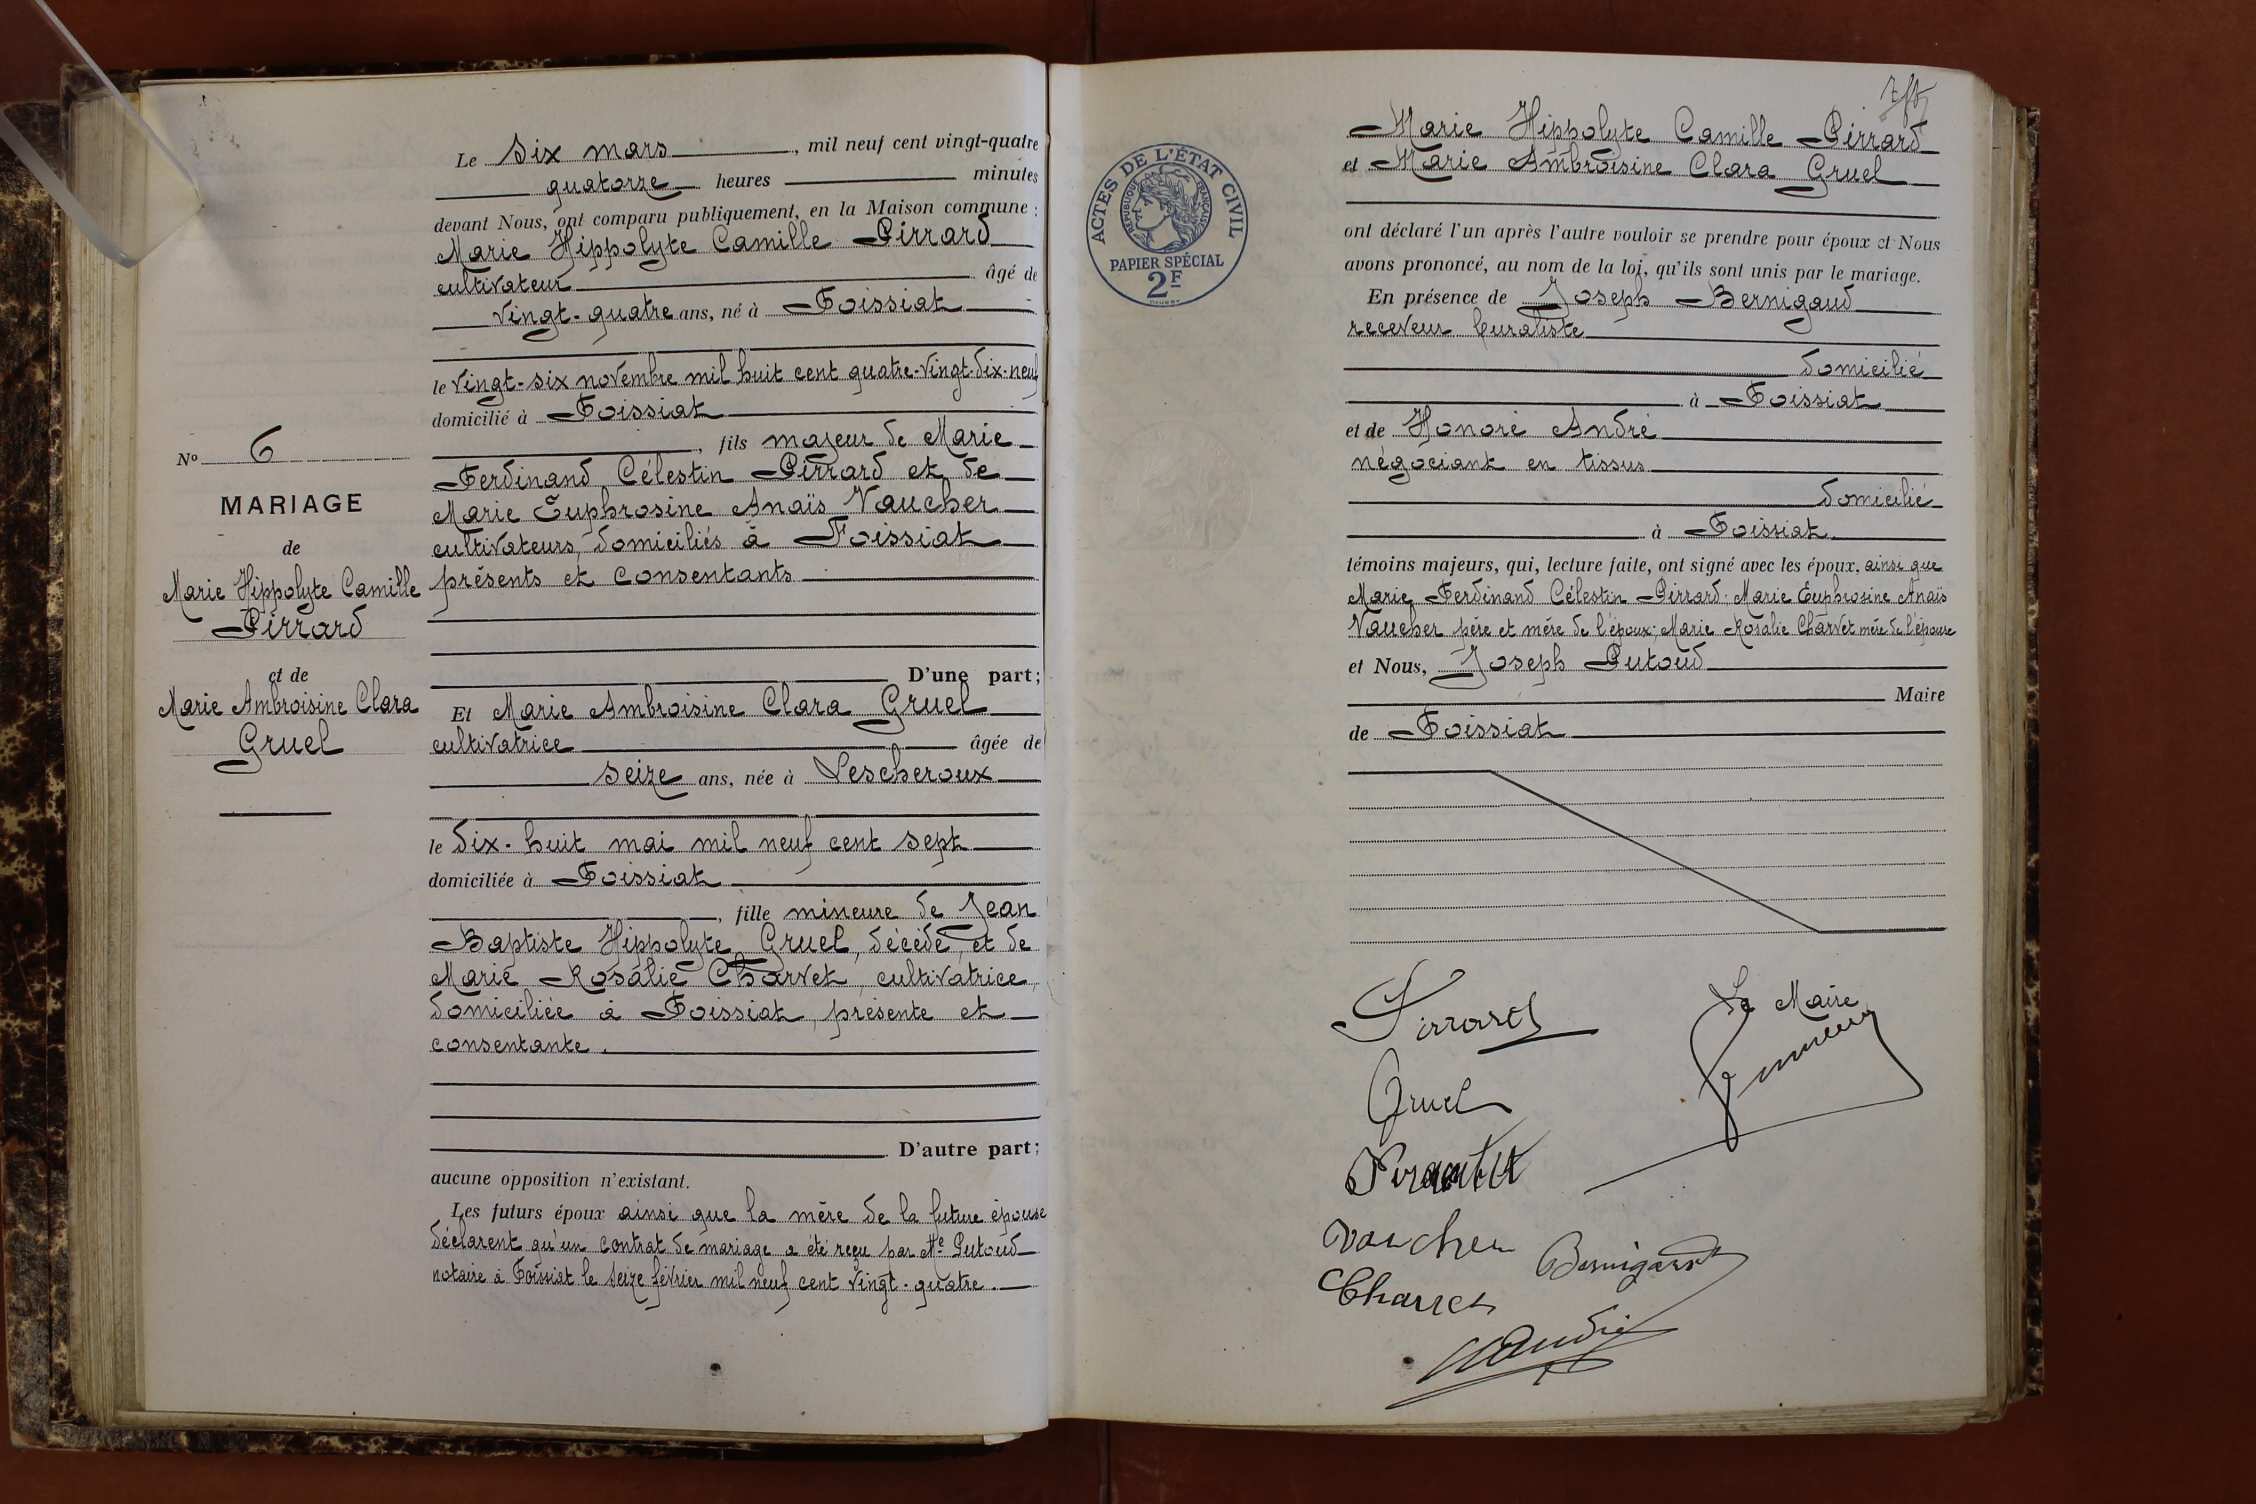 Le six mars, mil neuf cent vingt-quatre
quatorze heures minutes
devant Nous, ont comparu publiquement, en la Maison commune :
Marie Hippolyte Camille Pirrard
cultivateur âgé de
vingt-quatre ans, né à Foissiat
le vingt-six novembre mil huit cent quatre-vingt-dix-neuf
domicilié à Foissiat
, fils majeur de Marie
Ferdinand Célestin Pirrard et de
Marie Euphrosine Anaïs Vaucher
cultivateurs, domiciliés à Foissiat
présents et consentants
D'une part;
Et Marie Ambroisine Clara Gruel
cultivatrice âgée de
seize ans, née à Lescheroux
le dix-huit mai mil neuf cent sept
domiciliée à Foissiat
, fille mineure de Jean
Baptiste Hippolyte Gruel, décédé, et de
Marie Rosalie Charvet, cultivatrice,
domiciliée à Foissiat, présente et
consentante.
D'autre part;
aucune opposition n'existant.
Les futurs époux ainsi que la mère de la future épouse
déclarent qu'un contrat de mariage a été reçu par Me Putoud
notaire à Foissiat le seize février mil neuf cent vingt-quatre.
No 6
MARIAGE
de
Marie Hippolyte Camille
Pirrard
et de
Marie Ambroisine Clara
Gruel
ACTES DE L'ÉTAT CIVIL
RÉPUBLIQUE FRANÇAISE
PAPIER SPÉCIAL
2F
Marie Hippolyte Camille Pirrard
et Marie Ambroisine Clara Gruel
ont déclaré l'un après l'autre vouloir se prendre pour époux et Nous
avons prononcé, au nom de la loi, qu'ils sont unis par le mariage.
En présence de Joseph Bernigaud
receveur buraliste
domicilié
à Foissiat
et de Honoré André
négociant en tissus
domicilié
à Foissiat
témoins majeurs, qui, lecture faite, ont signé avec les époux, ainsi que
Marie Ferdinand Célestin Pirrard. Marie Euphrosine Anaïs
Vaucher père et mère de l'époux; Marie Rosalie Charvet mère de l'épouse
et Nous, Joseph Putoud
Maire
de Foissiat
Pirrard
Le Maire
Gruel
Vaucher
Bernigaud
Charvet
André